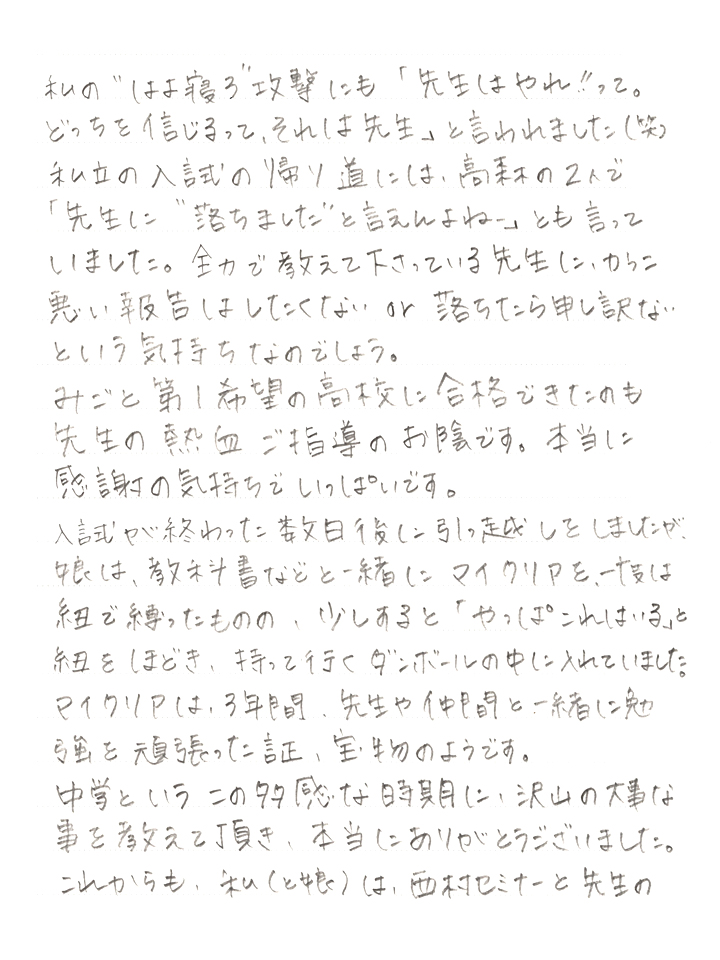 私の"はよ寝ろ"攻撃にも「先生はやれ!!って。
どっちを信じるって、それは先生」と言われました(笑)
私立の入試の帰り道には、高森の2人で
「先生に"落ちました"と言えんよねー」とも言って
いました。全力で教えて下さっている先生に、からこ
悪い報告はしたくない or 落ちたら申し訳ない
という気持ちなのでしょう。
みごと第1希望の高校に合格できたのも
先生の熱血ご指導のお陰です。本当に
感謝の気持ちでいっぱいです。
入試が終わった数日後に引っ越しをしましたが、
娘は、教科書などと一緒にマイクリアを、一度は
紐で縛ったものの、少しすると「やっぱこれはいる」と
紐をほどき、持って行くダンボールの中に入れていました。
マイクリアは、3年間、先生や仲間と一緒に勉
強を頑張った証、宝物のようです。
中学というこの多感な時期に、沢山の大事な
事を教えて頂き、本当にありがとうございました。
これからも、私(と娘)は、西村セミナーと先生の